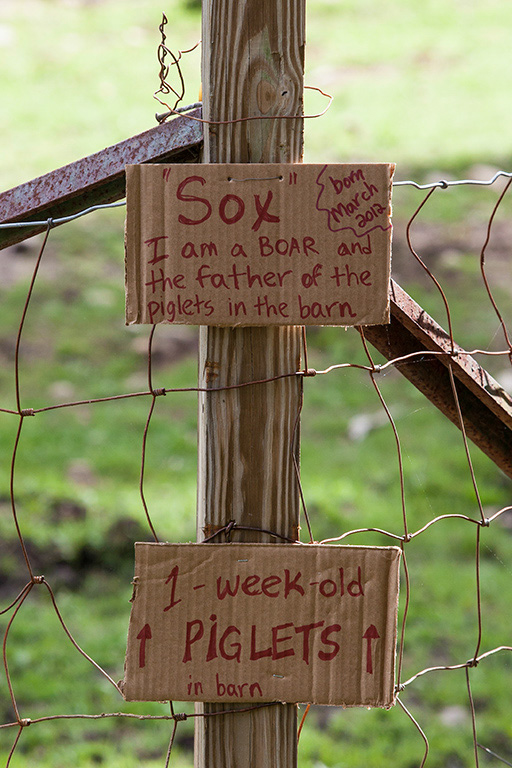 "Sox"
born
March
2012
I am a BOAR and
the father of the
piglets in the barn
1-week-old
↑ PIGLETS ↑
in barn